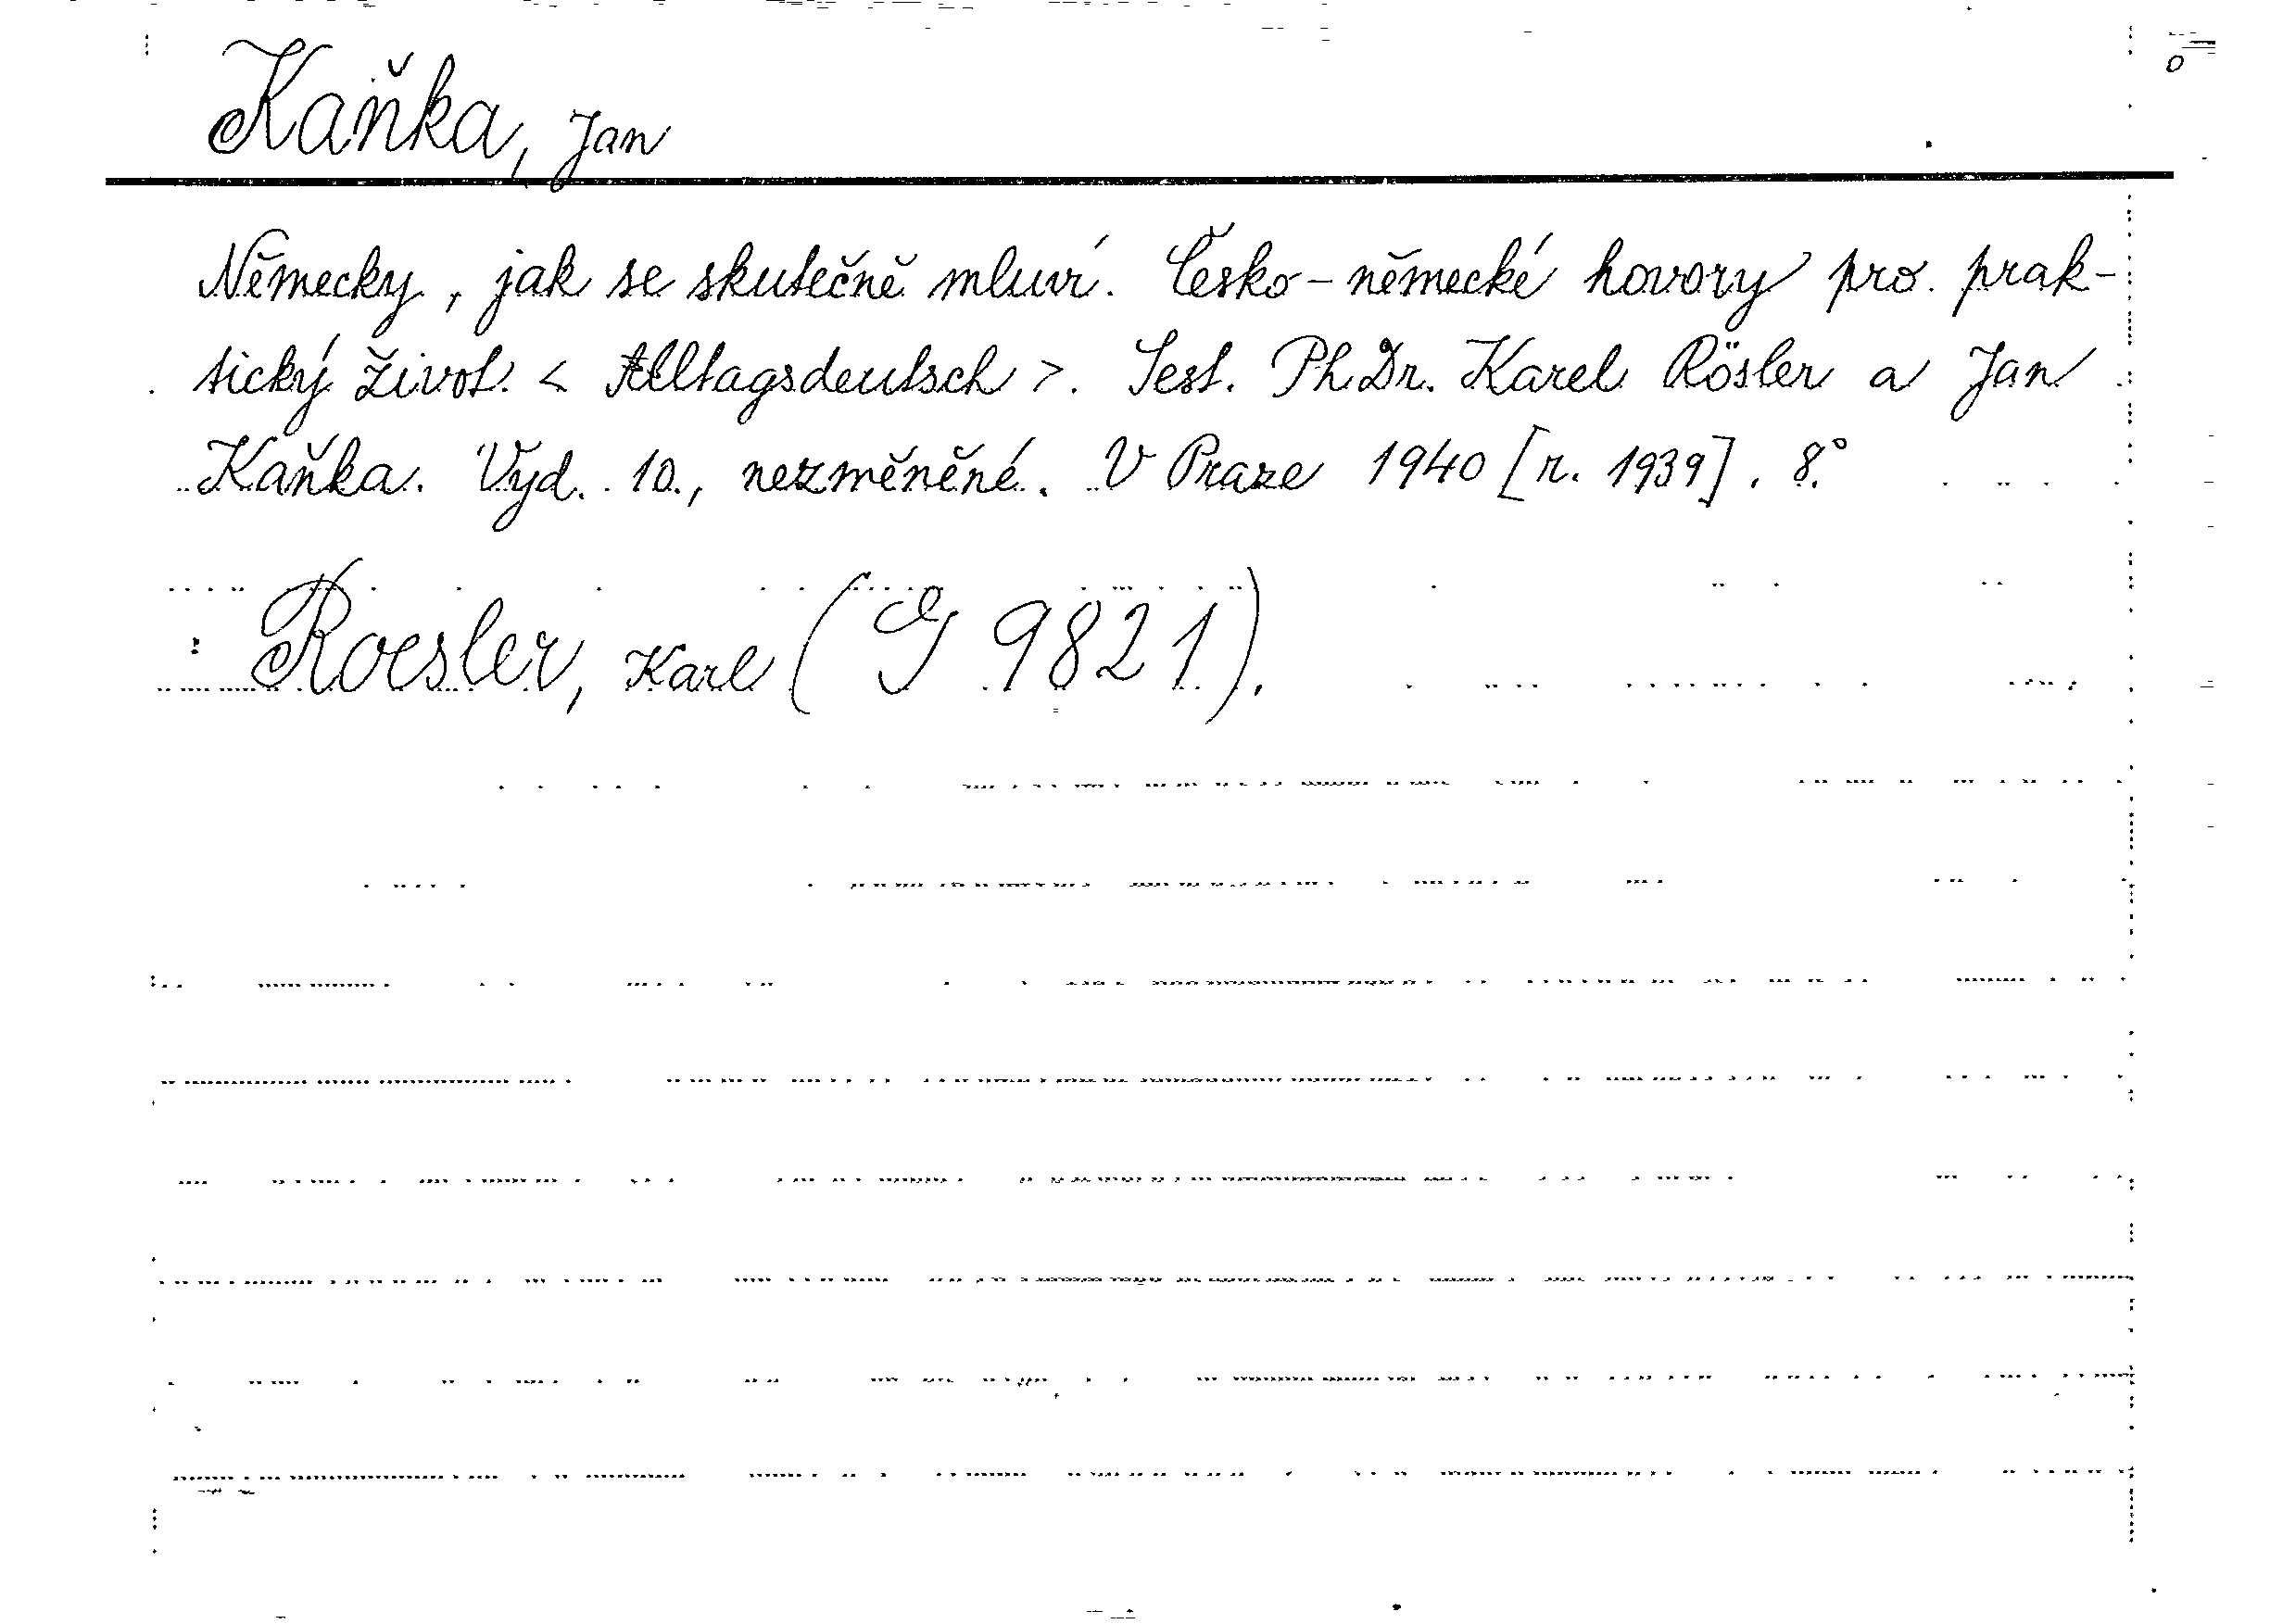 Kaňka, Jan
Německy, jak se skutečně mluví. Česko-německé hovory pro prak-
tický život. < Alltagsdeutsch >. Sest. PhDr. Karel Rösler a Jan
Kaňka. Vyd. 10., nezměněné. V Praze 1940 [r. 1939]. 8°.
Roesler, Karl (I 9821).